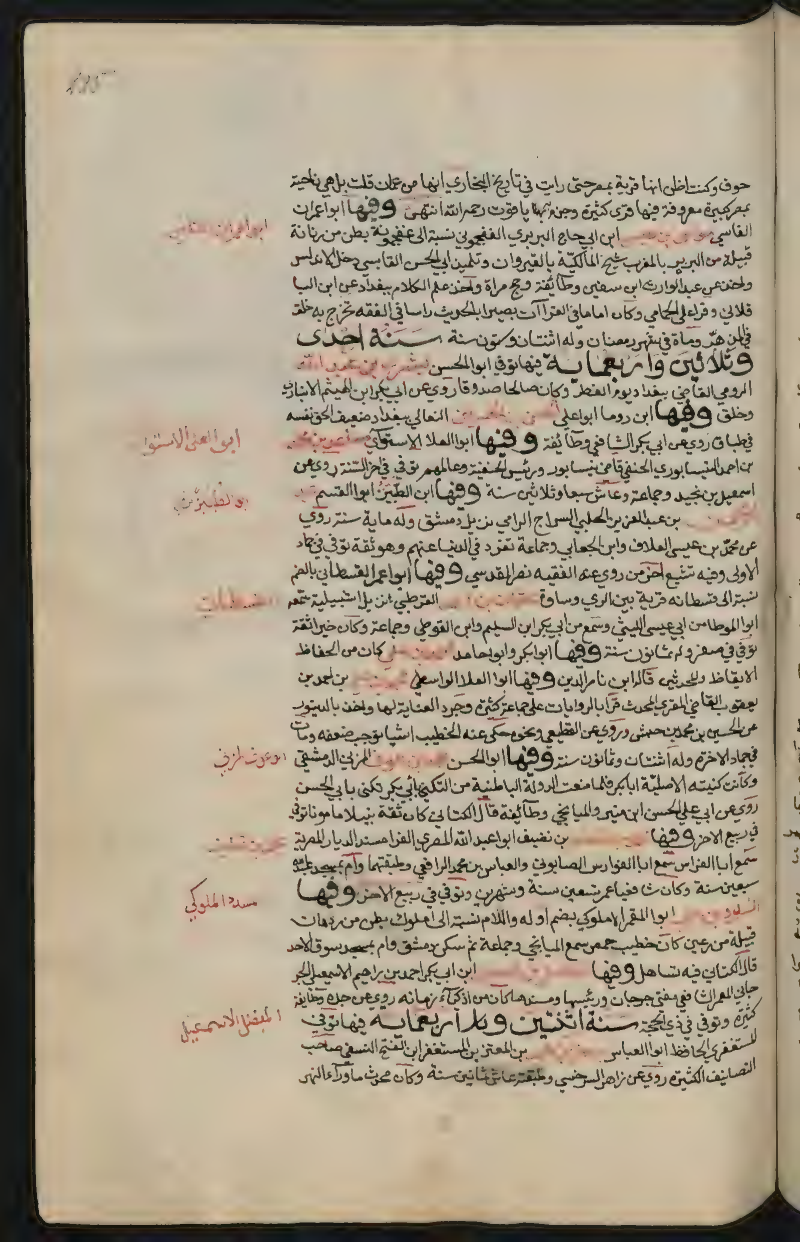 حوف وكنت اظن انها قرية بمصر حتى رايت في تاريخ البخاري انها من عمان قلت بل هي ناحية
بمصر كبيرة معروفة فيها قرى كثيرة ومن ثم ياقوت رحمه الله انتهى وفيها ابو عمران
الفاسي موسى بن عيسى ابن ابي حاج البربري الغفجوني نسبة الى غفجوية بطن من زنانة
قبيلة من البربر بالمغرب شيخ المالكية بالقيروان وتلميذ ابي الحسن القابسي دخل الاندلس
واخذ عن عبد الوارث ابن سفين وطائفة وحج مراة واخذ علم الكلام ببغداد عن ابن البا
قلاني وقراء على الحامي وكان اماما في القراآت بصيرا بالحديث راسا في الفقه تخرج به خلق
في المذهب ومات في شهر رمضان وله اثنتان وستون سنة سنة احدى
وثلاثين واربعماية فيها توفي ابو الحسن بشرى بن عبد الله
الرومي القاضي ببغداد يوم الفطر وكان صالحا صدوقا روى عن ابي بكر ابن الهيثم الانباري
وخلق وفيها ابن دوما ابو علي الحسن بن الحسين النعالي ببغداد ضعيف الحق نفسه
في طباق روى عن ابي بكر الشافعي وطائفة وفيها ابو العلا الاستوائي صاعد بن محمد
بن احمد النيسابوري الحنفي قاضي نيسابور ورئيس الحنفية وعالمهم توفي في اخر السنة روى عن
اسمعيل بن نجيد وجماعة وعاش سبعا وثلاثين سنة وفيها ابن الطبيز ابو القسم
بن عبد العزيز الحلبي السراج الرامي نزيل دمشق وله ماية سنة روى
عن محمد بن عيسى العلاف وابن الجعابي وجماعة تفرد في الدنيا عنهم وهو ثقة توفي في جماد
الاولى وفيه تشيع اخر من روى عنه الفقيه نصر المقدسي وفيها ابو عمر القسطاني بالضم
نسبة الى قسطانه قرية بين الري وساوة عثمان بن احمد القرطبي نزيل اشبيلية سمع
ابو الموطا من ابي عيسى الليثي وسمع من ابي بكر ابن السليم وابن القوطي وجماعة وكان خيرا ثقة
توفي في صفر وله ثمانون سنة وفيها ابو بكر وابو حامد كان من الحفاظ
الايقاظ والمحدثين قاله ابن ناصر الدين وفيها ابو العلا الواسطي محمد بن علي بن احمد بن
يعقوب القاضي المقري المحدث قرا بالروايات على جماعة كثيرة وجرد العناية لها واخذ بالدينور
عن الحسين بن محمد بن حبش وروى عن القطيعي ونحوه حكى عنه الخطيب اشيا توجب ضعفه ومات
في جماد الاخرة وله اثنتان وثمانون سنة وفيها ابو الحسن محمد بن عوف المزني الدمشقي
وكانت كنيته الاصلية ابا بكر فلما منعت الدولة الباطنية من التكني بابي بكر تكنى بابي الحسن
روى عن ابي علي الحسن ابن منير والميانجي وطائفة قال الكتاني كان ثقة نبيلا مامونا توفي
في ربيع الاخر وفيها بن نضيف ابو عبد الله المصري الفرا مسند الديار المصرية
سمع ابا الفوارس الصابوني والعباس بن محمد الرافقي وطبقتهما وام بمسجد عبد الله
سبعين سنة وكان شافعيا عمر تسعين سنة وشهرين وتوفي في ربيع الاخر وفيها
المسدد بن علي ابو المعمر الاملوكي بضم اوله واللام نسبة الى املوك بطن من ردمان
قبيلة من رعين كان خطيب حمص سمع الميانجي وجماعة ثم سكن دمشق وام بمسجد سوق الاحد
قال الكتاني فيه تساهل وفيها ابن ابي بكر احمد بن ابراهيم الاسمعيلي الجر
جاني المعمر الشافعي مفتي جرجان ورئيسها ومسندها كان من اذكياء زمانه روى عن جده وطائفة
كثيرة وتوفي في ذي الحجة سنة اثنين وثلاثين واربعماية فيها توفي
المستغفري الحافظ ابو العباس بن المعتز بن المستغفر ابن الفتح النسفي صاحب
التصانيف الكثيرة روى عن زاهر السرخسي وطبقته عاش ثمانين سنة وكان محدث ما وراء النهر
ابو عمران الفاسي
ابو العلى الاستوا
ابن الطبيز
القسطاني
ابن عوف المزني
مسدد الملوكي
المفضل الاسمعيلي